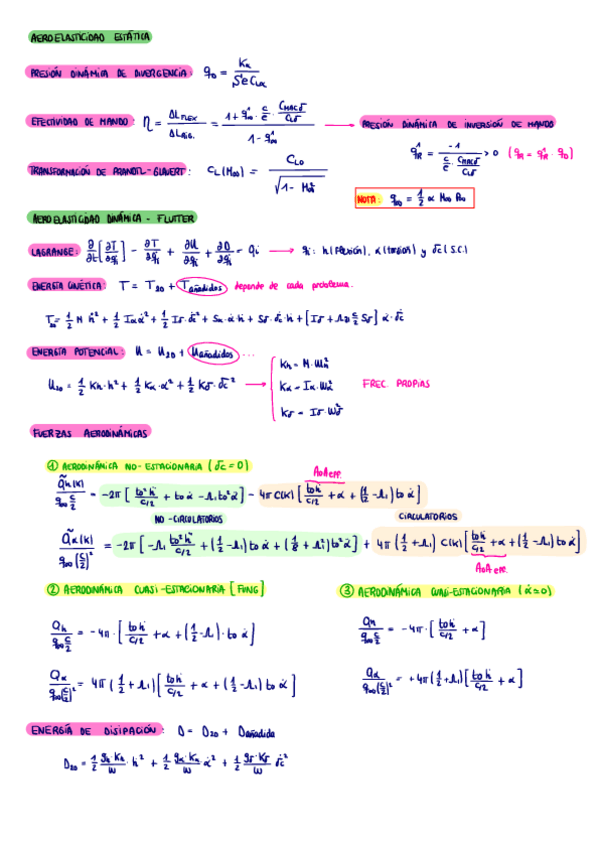 AEROELASTICIDAD ESTÁTICA
PRESIÓN DINÁMICA DE DIVERGENCIA: q_D = K_α / (S e C_Lα)
EFECTIVIDAD DE MANDO: η = ΔL_FLEX. / ΔL_RÍG. = (1 + q̂_∞ · (c/e) · (C_MACδ / C_Lδ)) / (1 - q̂_∞) → PRESIÓN DINÁMICA DE INVERSIÓN DE MANDO
q̂_R = -1 / ((c/e) · (C_MACδ / C_Lδ)) > 0 (q_R = q̂_R · q_D)
TRANSFORMACIÓN DE PRANDTL-GLAUERT: C_L(M_∞) = C_L0 / √(1 - M_∞²)
NOTA: q_∞ = 1/2 α M_∞ P_∞
AEROELASTICIDAD DINÁMICA - FLUTTER
LAGRANGE: ∂/∂t [∂T/∂q̇_i] - ∂T/∂q_i + ∂U/∂q_i + ∂D/∂q̇_i = Q_i → q_i: h (flexión), α (torsión) y δ_c (S.C.)
ENERGÍA CINÉTICA: T = T_2D + T_añadidos depende de cada problema.
T_2D = 1/2 M ḣ² + 1/2 I_α α̇² + 1/2 I_δ · δ̇_c² + S_α · α̇ · ḣ + S_δ · δ̇_c · ḣ + [I_δ + Λ_D c/2 S_δ] α̇ · δ̇_c
ENERGÍA POTENCIAL: U = U_2D + U_añadidos ...
U_2D = 1/2 K_h · h² + 1/2 K_α · α² + 1/2 K_δ · δ_c² →
K_h = M · ω_h²
K_α = I_α · ω_α² FREC. PROPIAS
K_δ = I_δ · ω_δ²
FUERZAS AERODINÁMICAS
① AERODINÁMICA NO-ESTACIONARIA (δ_c = 0)
AoA eff.
Q̃_h(k) / (q_∞ c/2) = -2π [t_0² ḧ / (c/2) + t_0 α̇ - Λ_1 t_0² α̈] - 4π C(k) [t_0 ḣ / (c/2) + α + (1/2 - Λ_1) t_0 α̇]
NO-CIRCULATORIOS CIRCULATORIOS
Q̃_α(k) / (q_∞ (c/2)²) = -2π [-Λ_1 t_0² ḧ / (c/2) + (1/2 - Λ_1) t_0 α̇ + (1/8 + Λ_1²) t_0² α̈] + 4π (1/2 + Λ_1) C(k) [t_0 ḣ / (c/2) + α + (1/2 - Λ_1) t_0 α̇]
AoA eff.
② AERODINÁMICA CUASI-ESTACIONARIA [FUNG] ③ AERODINÁMICA CUASI-ESTACIONARIA (α̇ = 0)
Q_h / (q_∞ c/2) = -4π · [t_0 ḣ / (c/2) + α + (1/2 - Λ_1) · t_0 α̇] Q_h / (q_∞ c/2) = -4π · [t_0 ḣ / (c/2) + α]
Q_α / (q_∞ (c/2)²) = 4π (1/2 + Λ_1) [t_0 ḣ / (c/2) + α + (1/2 - Λ_1) t_0 α̇] Q_α / (q_∞ (c/2)²) = +4π (1/2 + Λ_1) [t_0 ḣ / (c/2) + α]
ENERGÍA DE DISIPACIÓN: D = D_2D + D_añadida
D_2D = 1/2 g_h · K_h / ω · ḣ² + 1/2 g_α · K_α / ω · α̇² + 1/2 g_δ · K_δ / ω · δ̇_c²